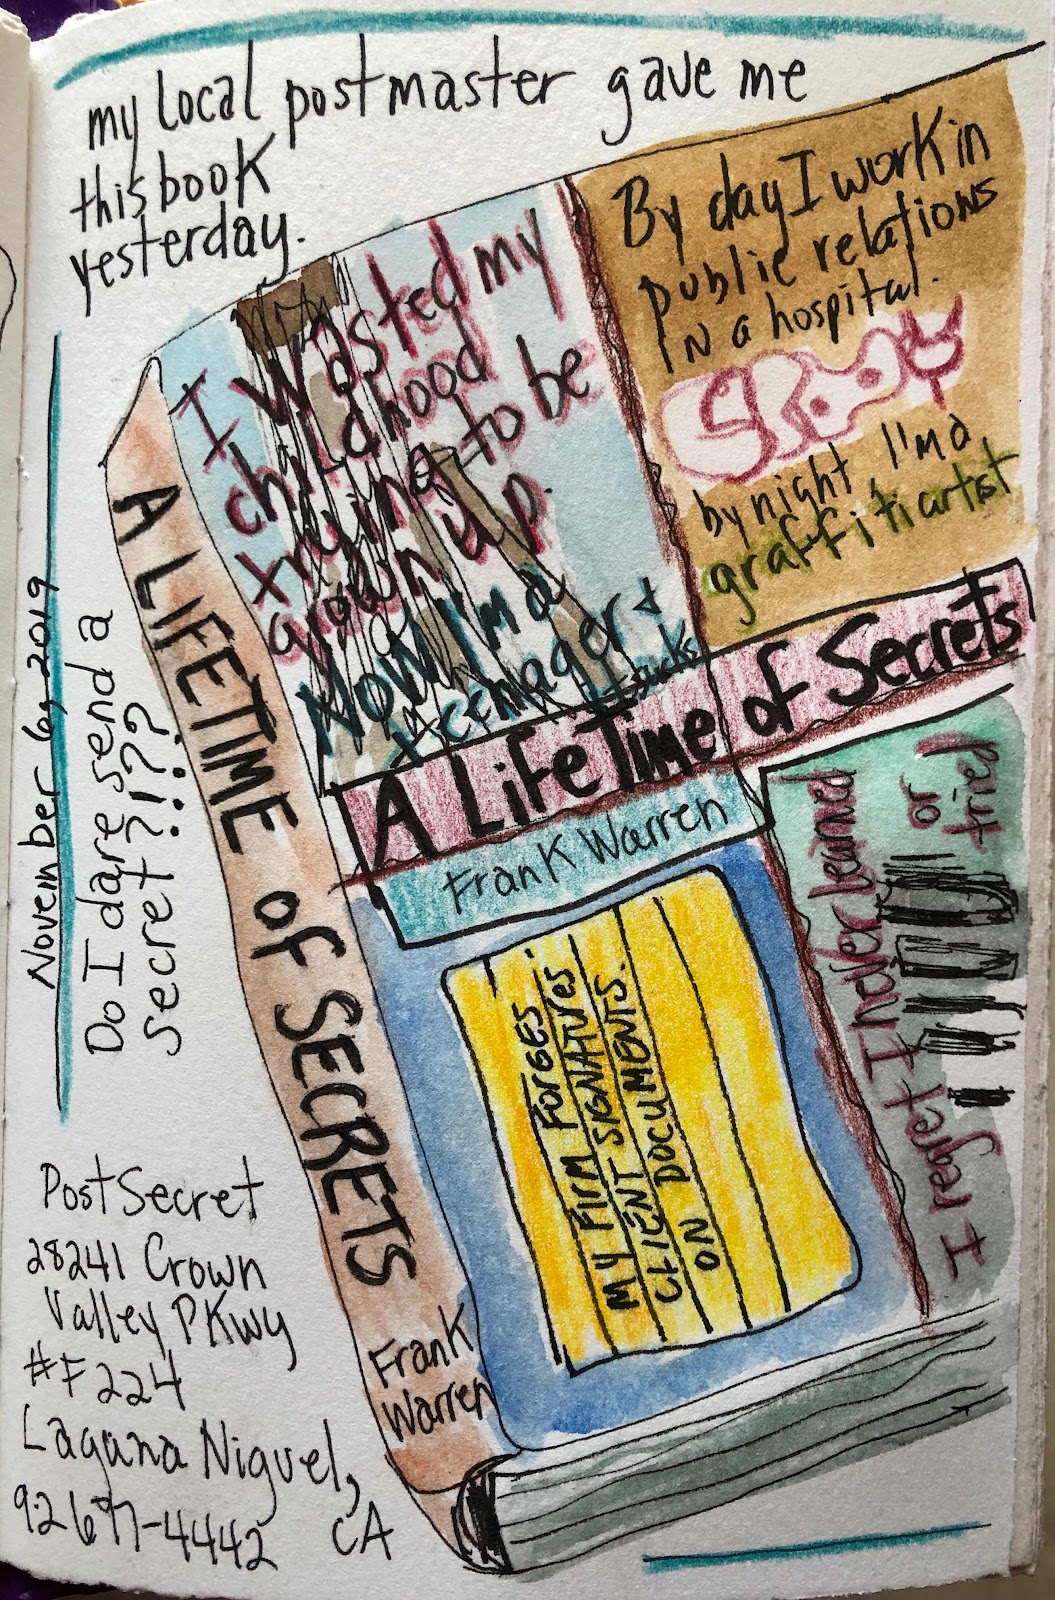 my local postmaster gave me
this book
yesterday.
November 6, 2019
Do I dare send a
secret?!?!??
I wasted my
childhood
xrying to be
grown up.
Now I'm a
teenager &
it sucks
By day I work in
public relations
in a hospital.
by night, I'm a
graffiti artist
A LifeTime of Secrets
Frank Warren
MY FIRM FORGES
CLIENT SIGNATURES
ON DOCUMENTS.
I regret I never learned
or
tried
A LIFETIME OF SECRETS
Frank
Warren
PostSecret
28241 Crown
Valley PKwy
#F224
Laguna Niguel,
92677-4442 CA